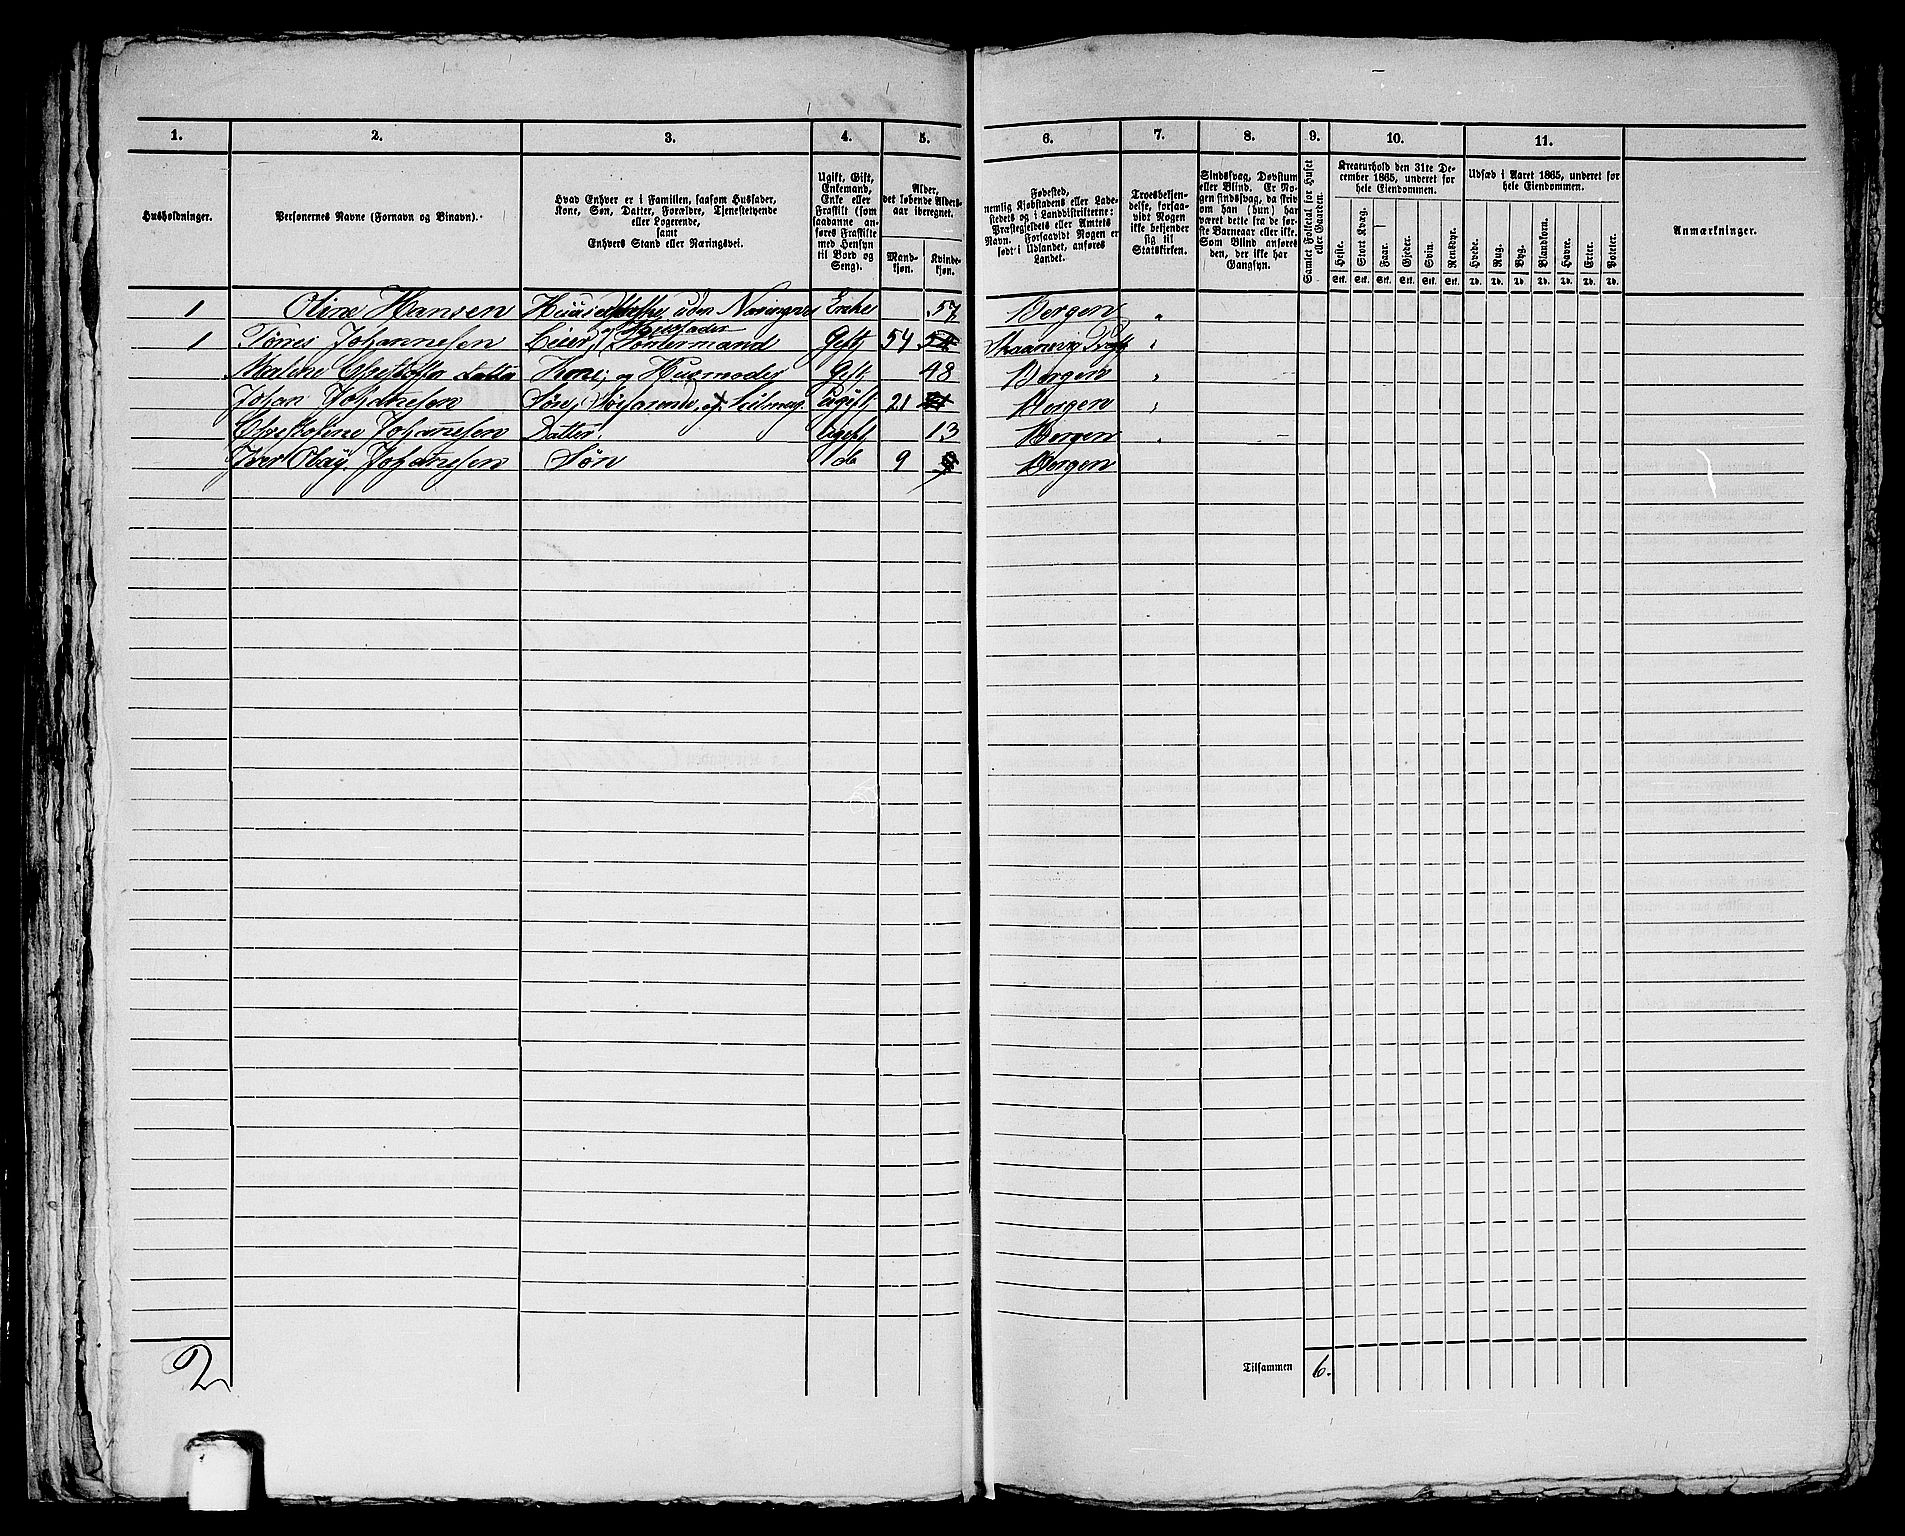 1. 2. 3. 4. 5. 6. 7. 8. 9. 10. 11.
Husholdninger.
Personernes Navne (Fornavn og Binavn).
Hvad Enhver er i Familien, saasom Husfader,
Kone, Søn, Datter, Forældre, Tjenestetyende
eller Logerende,
samt
Enhvers Stand eller Næringsvei.
Ugift, Gift,
Enkemand,
Enke eller
Fraskilt (som
saadanne an-
føres Fraskilte
med Hensyn
til Bord og
Seng).
Alder,
det løbende Alders-
aar iberegnet.
Mand-
kjøn.
Kvinde-
kjøn.
Fødested,
nemlig Kjøbstadens eller Lade-
stedets og i Landdistrikterne:
Præstegjeldets eller Amtets
Navn. Forsaavidt Nogen er
født i Udlandet, anføres
Landet.
Troesbekjen-
delse, forsaa-
vidt Nogen
ikke bekjender
sig til
Statskirken.
Sindssvag, Døvstum
eller Blind. Er No-
gen sindssvag, da skriv
om han (hun) har
været dette fra de før-
ste Barneaar eller ikke.
Som Blind anføres
den, der ikke har
Gangsyn.
Samlet Folketal for Huset
eller Gaarden.
Kreaturhold den 31te De-
cember 1865, underet for
hele Eiendommen.
Heste.
Stort Kvæg.
Faar.
Gjeder.
Svin.
Rensdyr.
Stk. Stk. Stk. Stk. Stk. Stk.
Udsæd i Aaret 1865, underet for
hele Eiendommen.
Hvede.
Rug.
Byg.
Blandkorn.
Havre.
Erter.
Poteter.
Td. Td. Td. Td. Td. Td. Td.
Anmærkninger.
1 Oline Hansen uden Enke 57 Bergen "
1 Johannesen Leier, Husfader Gift 54 "
Malene Datter Kone, og Husmoder Gift 48 Bergen "
Johan Johannesen Søn, Ugift 21 Bergen "
Johannesen Datter. Ugift 13 Bergen "
Iver Olay Johannesen Søn do 9 Bergen
Tilsammen 6.
2